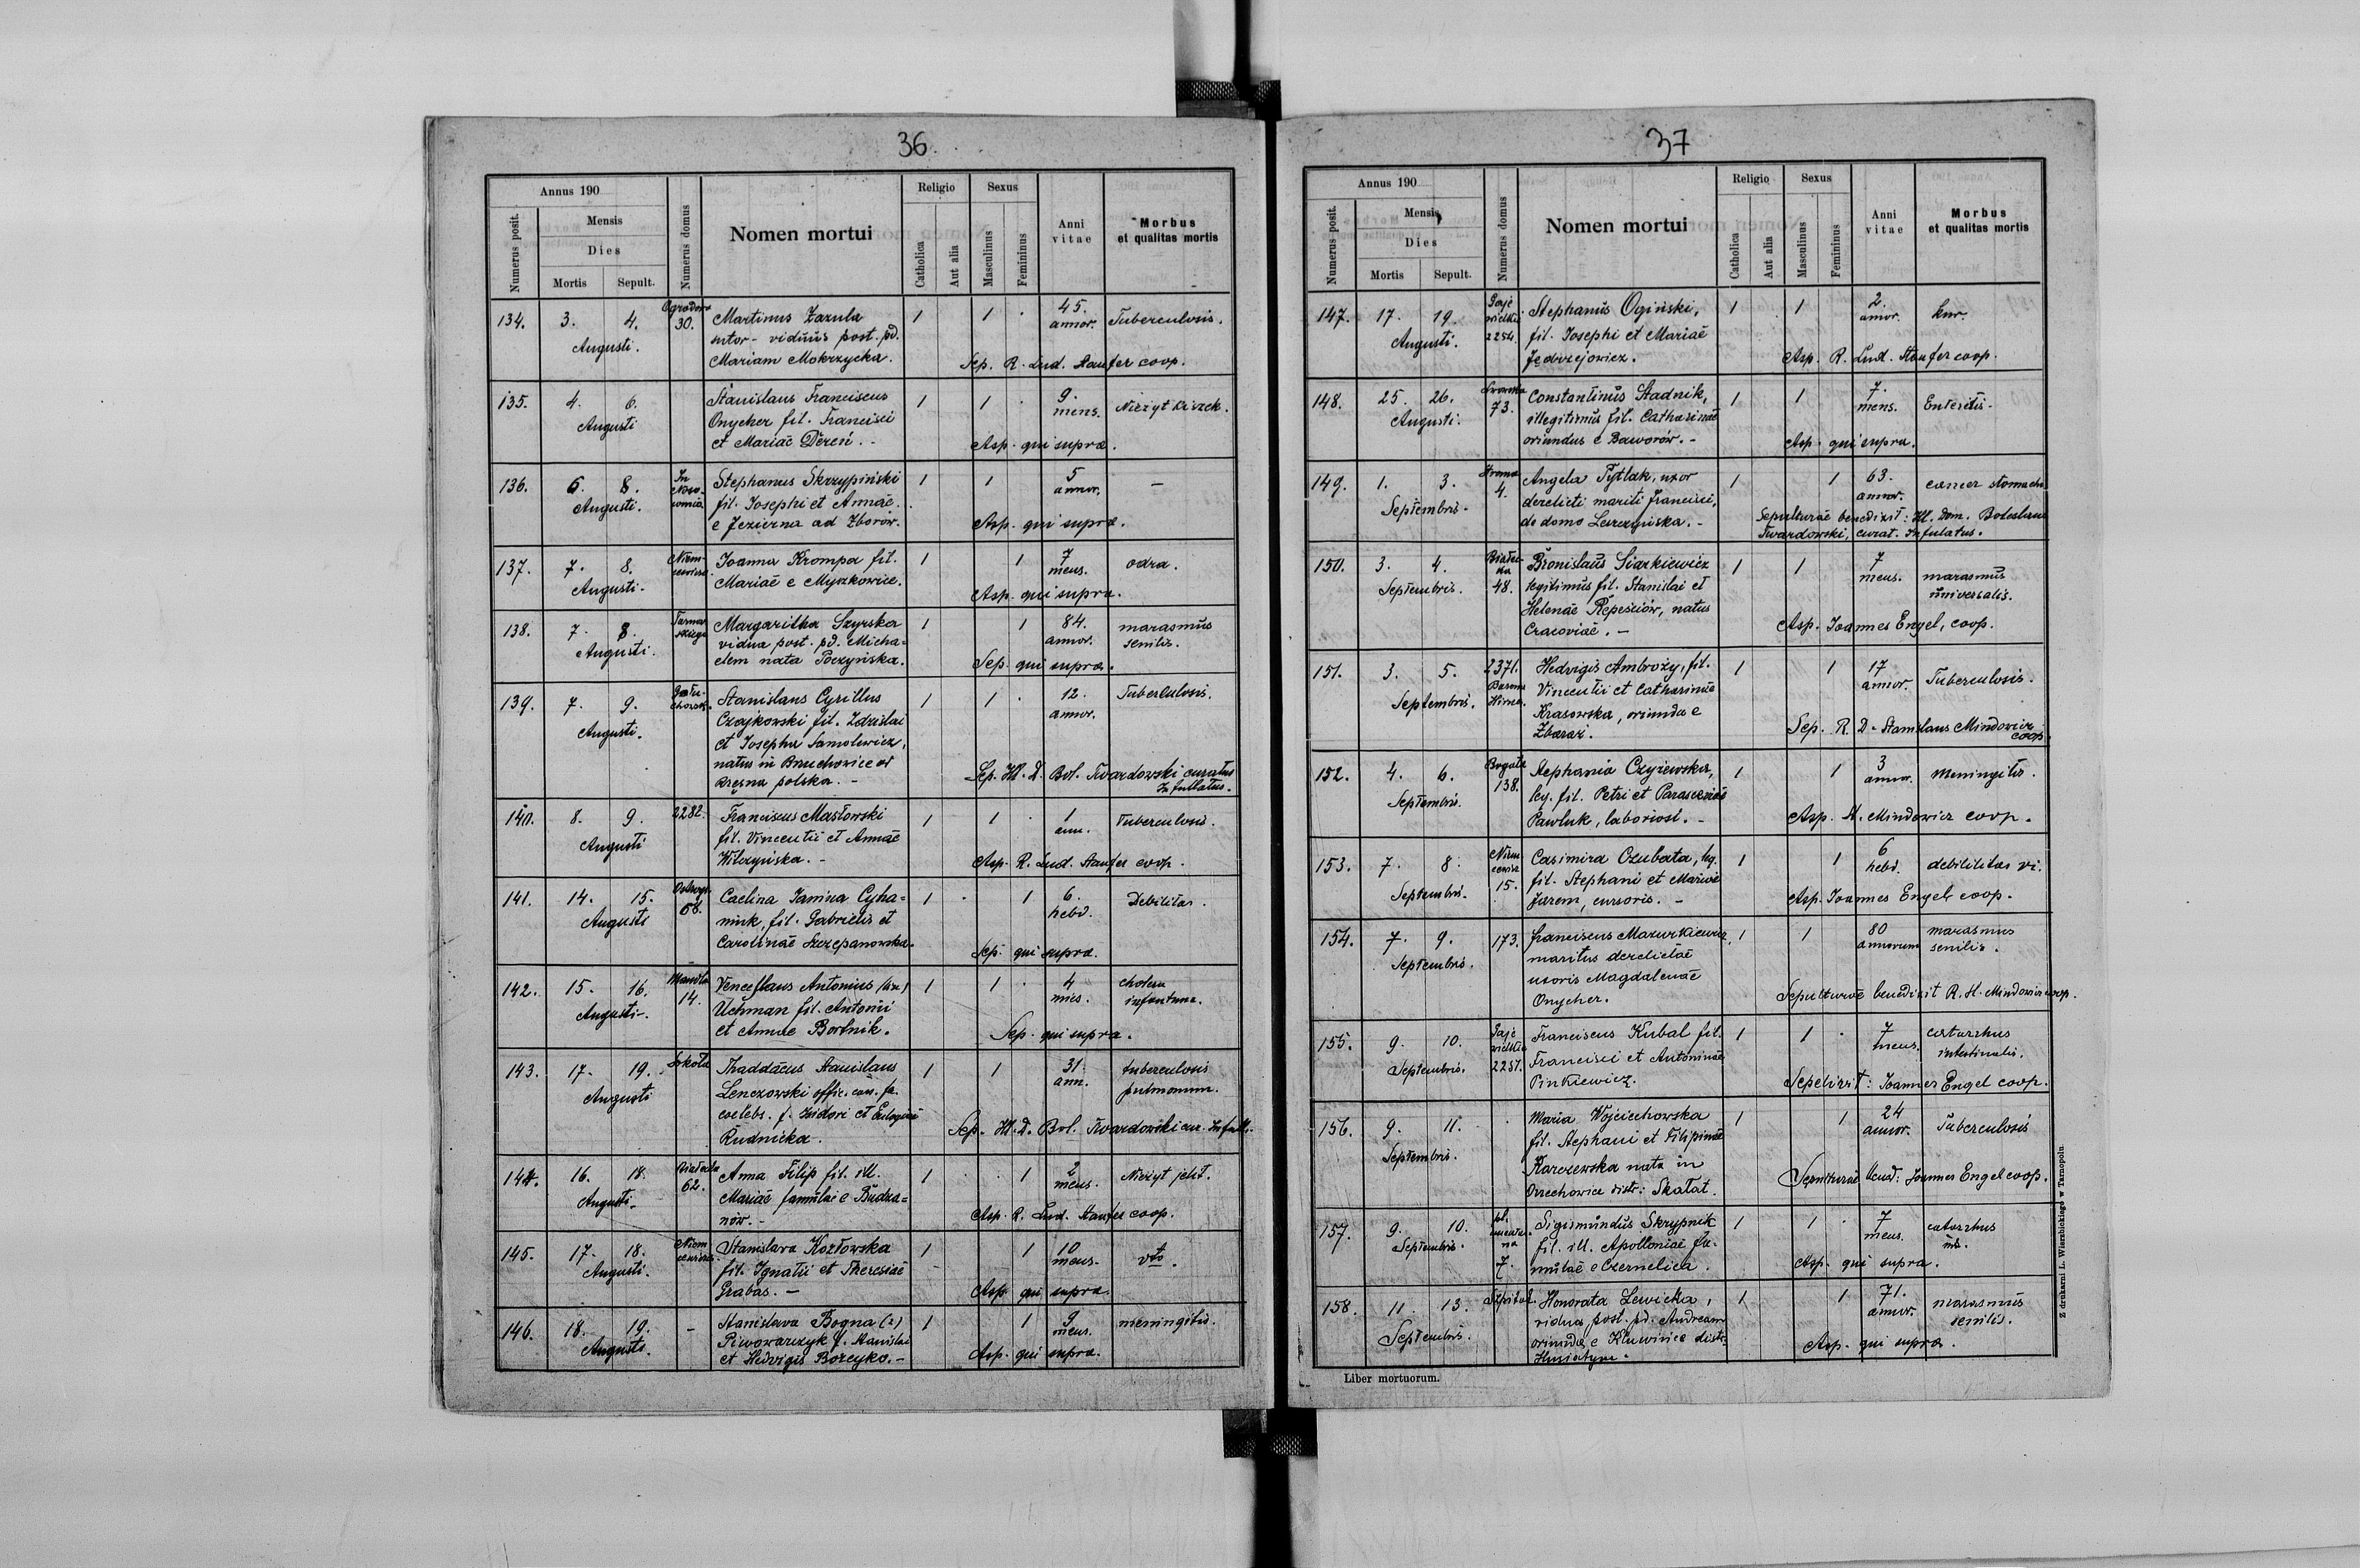 36.
Annus 190
Numerus posit.
Mensis
Dies
Mortis Sepult.
Numerus domus
Nomen mortui
Religio
Catholica
Aut alia
Sexus
Masculinus
Femininus
Anni vitae
Morbus et qualitas mortis
134. 3. 4. Augusti. 30.
Martinus Zazula
sutor - viduus post. pd.
Mariam Mokrzycka.
1 1 45. annor. Tuberculosis.
Sep. R. Lud. Staufer coop.
135. 4. 6. Augusti
Stanislaus Franciscus
Onycher fil. Francisci
et Mariae Dereń. -
1 1 9. mens. Nieżyt kiszek.
Asp. qui supra.
136. 6. 8. Augusti.
Stephanus Skrzypiński
fil. Josephi et Annae
e Jezierna ad Zborów.
1 1 5 annor. -
Asp. qui supra.
137. 7. 8. Augusti.
Joanna Krompa fil.
Mariae e Myszkowice.
1 1 7 mens. odra.
Asp. qui supra.
138. 7. 8. Augusti.
Margaritha Szyrska
vidua post. pd. Micha=
elem nata Poczyńska.
1 1 84. annor. marasmus senilis.
Sep. qui supra.
139. 7. 9. Augusti.
Stanislaus Cyrillus
Czajkowski fil. Zdzislai
et Josepha Samolewicz,
natus in Brzuchowice
polska. -
1 1 12. annor. Tuberculosis.
Sep. Ill. D. Bol. Twardowski curatus
Infullatus.
140. 8. 9. Augusti 2282.
Franciscus Masłowski
fil. Vincentii et Annae
Wilczyńska. -
1 1 1 ann. Tuberculosis.
Asp. R. Lud. Staufer coop.
141. 14. 15. Augusti 68.
Caelina Janina Cyha=
niuk, fil. Gabrielis et
Carolinae Szczepanowska.
1 1 6. hebd. Debilitas.
Sep. qui supra.
142. 15. 16. Augusti. 14.
Venceslaus Antonius
Uchman fil. Antonii
et Annae Bortnik.
1 1 4 mens. cholera infantum.
Sep. qui supra.
143. 17. 19. Augusti
Thaddaeus Stanislaus
Lenczowski offic.
coelebs. f. Isidori et
Rudnicka.
1 1 31. ann. tuberculosis pulmonum.
Sep. Ill. D. Bol. Twardowski cur. Infull.
144. 16. 18. Augusti. 62.
Anna Filip fil. ill.
Mariae famulae e Budza=
nów. -
1 1 2 mens. Nieżyt jelit.
Asp. R. Lud. Staufer coop.
145. 17. 18. Augusti.
Stanislava Kozłowska
fil. Ignatii et Theresiae
Grabas. -
1 1 10 mens.
Asp qui supra.
146. 18. 19. Augusti. -
Stanislava Bogna (2)
Piwowarczyk f. Stanislai
et Hedvigis Boreyko. -
1 1 9 mens. meningitis.
Asp. qui supra.
37
Annus 190
Numerus posit.
Mensis
Dies
Mortis Sepult.
Numerus domus
Nomen mortui
Religio
Catholica
Aut alia
Sexus
Masculinus
Femininus
Anni vitae
Morbus et qualitas mortis
147. 17. 19. Augusti. Gaje wielkie 2254.
Stephanus Ogiński,
fil. Josephi et Mariae
Jędrzejowicz.
1 1 2. annor. kur.
Asp. R. Lud. Staufer coop.
148. 25. 26. Augusti. 73.
Constantinus Stadnik,
illegitimus fil. Catharinae
oriundus e Baworów. -
1 1 7. mens. Enteritis.
Asp. qui supra.
149. 1. 3. Septembris. 4.
Angela Pytlak, uxor
derelicti mariti Francisci,
de domo Leszczyńska. -
1 1 63. annor. cancer stomachi
Sepulturae benedixit: Ill. Dom. Boleslaus
Twardowski, curat. Infulatus.
150. 3. 4. Septembris. 48.
Bronislaus Siarkiewicz
legitimus fil. Stanislai et
Helenae Repesciów, natus
Cracoviae. -
1 1 7 mens. marasmus universalis.
Asp. Joannes Engel, coop.
151. 3. 5. Septembris. 2371.
Hedvigis Ambroży, fil.
Vincentii et Catharinae
Krasowska, oriunda e
Zbaraż.
1 1 17 annor. Tuberculosis.
Sep. R. D. Stanislaus Mindowicz
coop.
152. 4. 6. Septembris. Bogata 138.
Stephania Czyżewska,
leg. fil. Petri et Parascevae
Pawluk, laboriosi. -
1 1 3 annor. Meningitis.
Asp. St. Mindowicz coop.
153. 7. 8. Septembris. 15.
Casimira Czubata, leg.
fil. Stephani et Mariae
Jarem, cursoris. -
1 1 6 hebd. debilitas vi.
Asp. Joannes Engel coop.
154. 7. 9. Septembris. 173.
Franciscus Mazurkiewicz,
maritus derelictae
uxoris Magdalenae
Onycher.
1 1 80 annorum marasmus senilis.
Sepulturae benedixit R. St. Mindowicz coop.
155. 9. 10. Septembris. Gaje wielkie 2257.
Franciscus Kubal fil.
Francisci et Antoninae
Pinkiewicz.
1 1 7 mens. catarrhus intestinalis.
Sepelivit: Joannes Engel coop.
156. 9. 11. Septembris.
Maria Wojciechowska
fil. Stephani et Filipinae
Karczewska nata in
Orzechowice distr: Skałat.
1 1 24 annor. Tuberculosis
Sepulturae bened: Joannes Engel coop.
157. 9. 10. Septembris. 7.
Sigismundus Skrypnik
fil. ill. Apolloniae fa-
mulae e Czernelica.
1 1 7 mens. catarrhus int.
Asp. qui supra.
158. 11. 13. Septembris. Szpital.
Honorata Lewicka,
vidua post. pd. Andream
oriunda e Kluwince distr.
Husiatyn.
1 1 71. annor. marasmus senilis.
Asp. qui supra.
Liber mortuorum.
Z drukarni L. Wierzbickiego w Tarnopolu